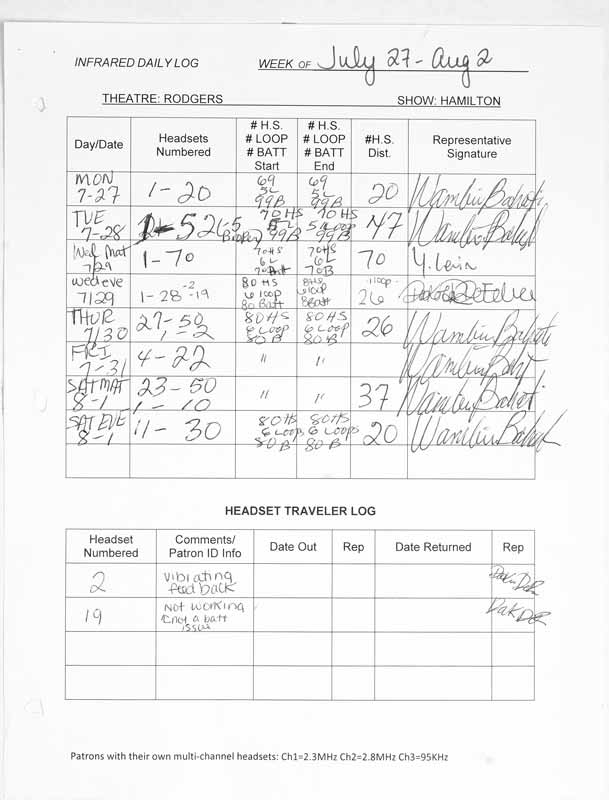 INFRARED DAILY LOG WEEK OF July 27 - Aug 2
THEATRE: RODGERS SHOW: HAMILTON
Day/Date Headsets Numbered # H.S. # LOOP # BATT Start # H.S. # LOOP # BATT End #H.S. Dist. Representative Signature
MON 7-27 1-20 69 5L 99B 69 5L 99B 20
TUE 7-28 70 HS 5L 99B 70 HS 5 Loop 99B 47
Wed Mat 7/29 1-70 70HS 6L 70Batt 70HS 6L 70B 70 Y. Levin
wed eve 7/29 1-28 -2 -19 80 HS 6 loop 80 Batt 8HS 6loop 8Batt 1 loop 26
THUR 7/30 27-50 1-2 80HS 6 LOOP 80B 80HS 6 LOOP 80B 26
FRI 7-31 4-22 " "
SAT MAT 8-1 23-50 1-10 " " 37
SAT EVE 8-1 11-30 80HS 6 LOOP 80B 80HS 6 LOOPS 80B 20
HEADSET TRAVELER LOG
Headset Numbered Comments/ Patron ID Info Date Out Rep Date Returned Rep
2 vibrating feed back
19 Not working (not a batt issue
Patrons with their own multi-channel headsets: Ch1=2.3MHz Ch2=2.8MHz Ch3=95KHz